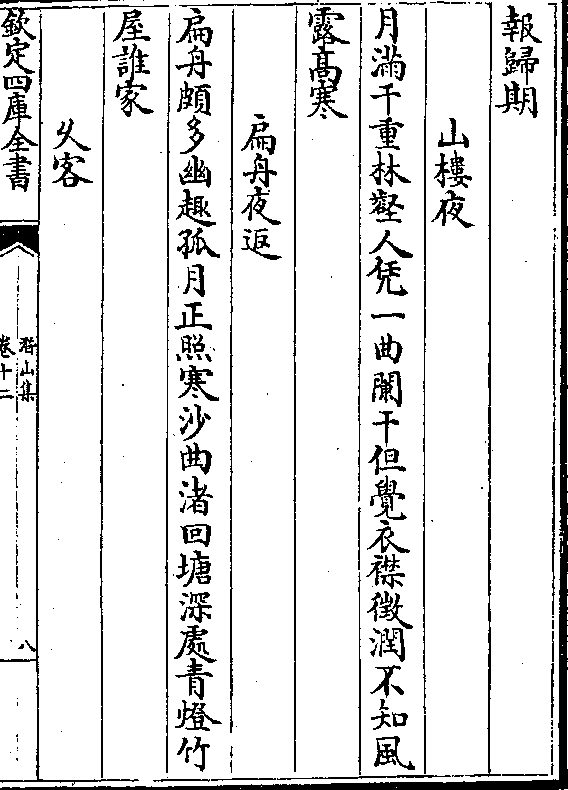 報歸期
山樓夜
月滿千重林壑人凭一曲闌干但覺衣襟微潤不知風
露髙寒
扁舟夜返
扁舟頗多幽趣孤月正照寒沙曲渚回塘深處青燈竹
屋誰家
久客
欽定四庫全書
潛山集
卷十二
八